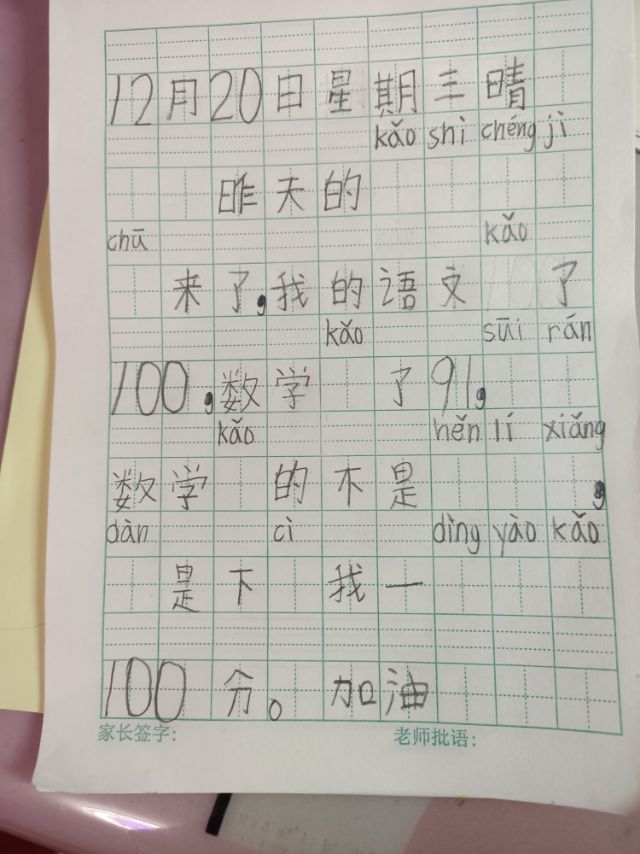 12月20日星期三晴
kǎo shì chéng jì
昨天的
chū kǎo
来了,我的语文 了
kǎo suī rán
100,数学 了91,
kǎo hěn lí xiǎng
数学 的不是 ,
dàn cì dìng yào kǎo
是下 我一
100分。加油
家长签字: 老师批语: